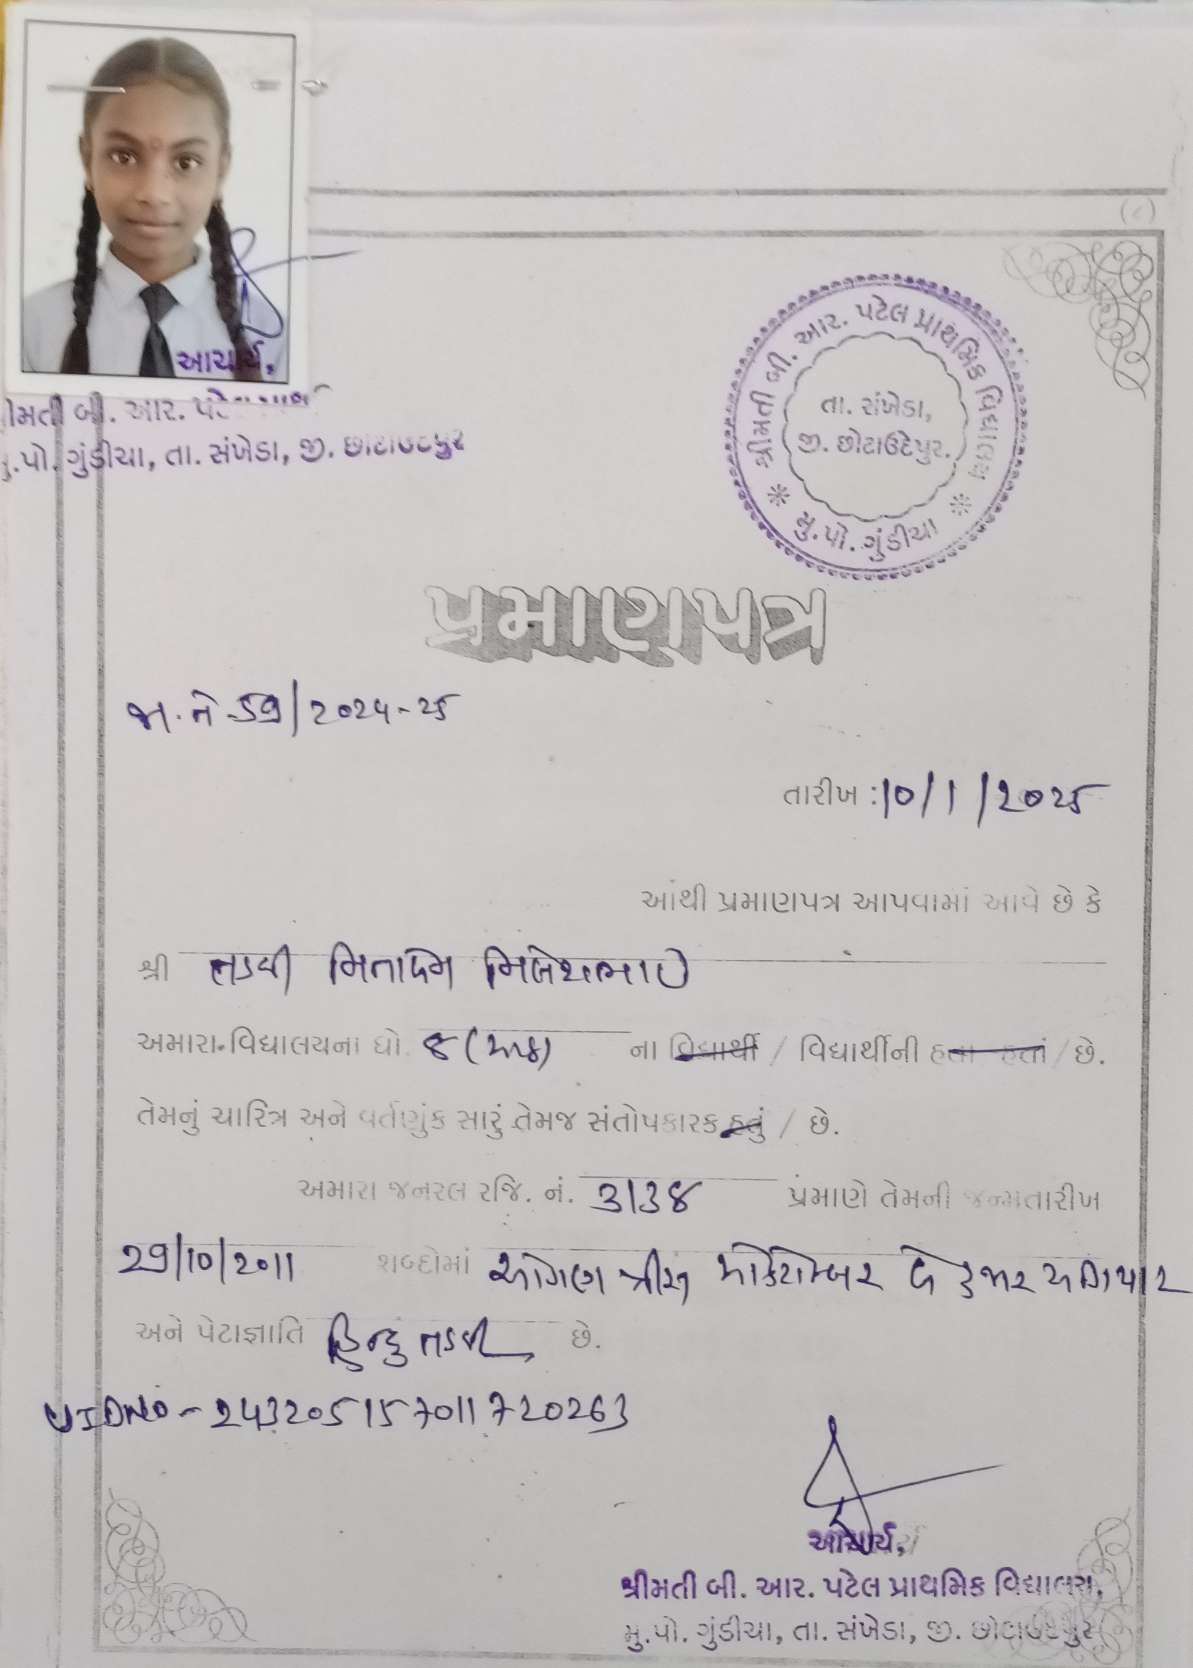 આચાર્ય,
શ્રીમતી બી. આર. પટેલ
મુ.પો. ગુંડીચા, તા. સંખેડા, જી. છોટાઉદેપુર
શ્રીમતી બી. આર. પટેલ પ્રાથમિક વિદ્યાલય
તા. સંખેડા,
જી. છોટાઉદેપુર.
* મુ.પો. ગુંડીચા *
પ્રમાણપત્ર
જા.નં. 59/2024-25
તારીખ : 10/1/2025
આંથી પ્રમાણપત્ર આપવામાં આવે છે કે
શ્રી તડવી મિતાબેન
અમારા વિદ્યાલયના ધો. ૮ (આઠ) ના વિદ્યાર્થી / વિદ્યાર્થીની હતા હતાં / છે.
તેમનું ચારિત્ર અને વર્તણુંક સારું તેમજ સંતોષકારક હતું / છે.
અમારા જનરલ રજિ. નં. 3138 પ્રમાણે તેમની જન્મતારીખ
29/10/2011 શબ્દોમાં ઓગણ ત્રીસ ઓક્ટોમ્બર બે હજાર અગિયાર
અને પેટાજ્ઞાતિ હિન્દુ તડવી છે.
UID NO - 243205157011720263
આચાર્ય,
શ્રીમતી બી. આર. પટેલ પ્રાથમિક વિદ્યાલય,
મુ.પો. ગુંડીચા, તા. સંખેડા, જી. છોટાઉદેપુર